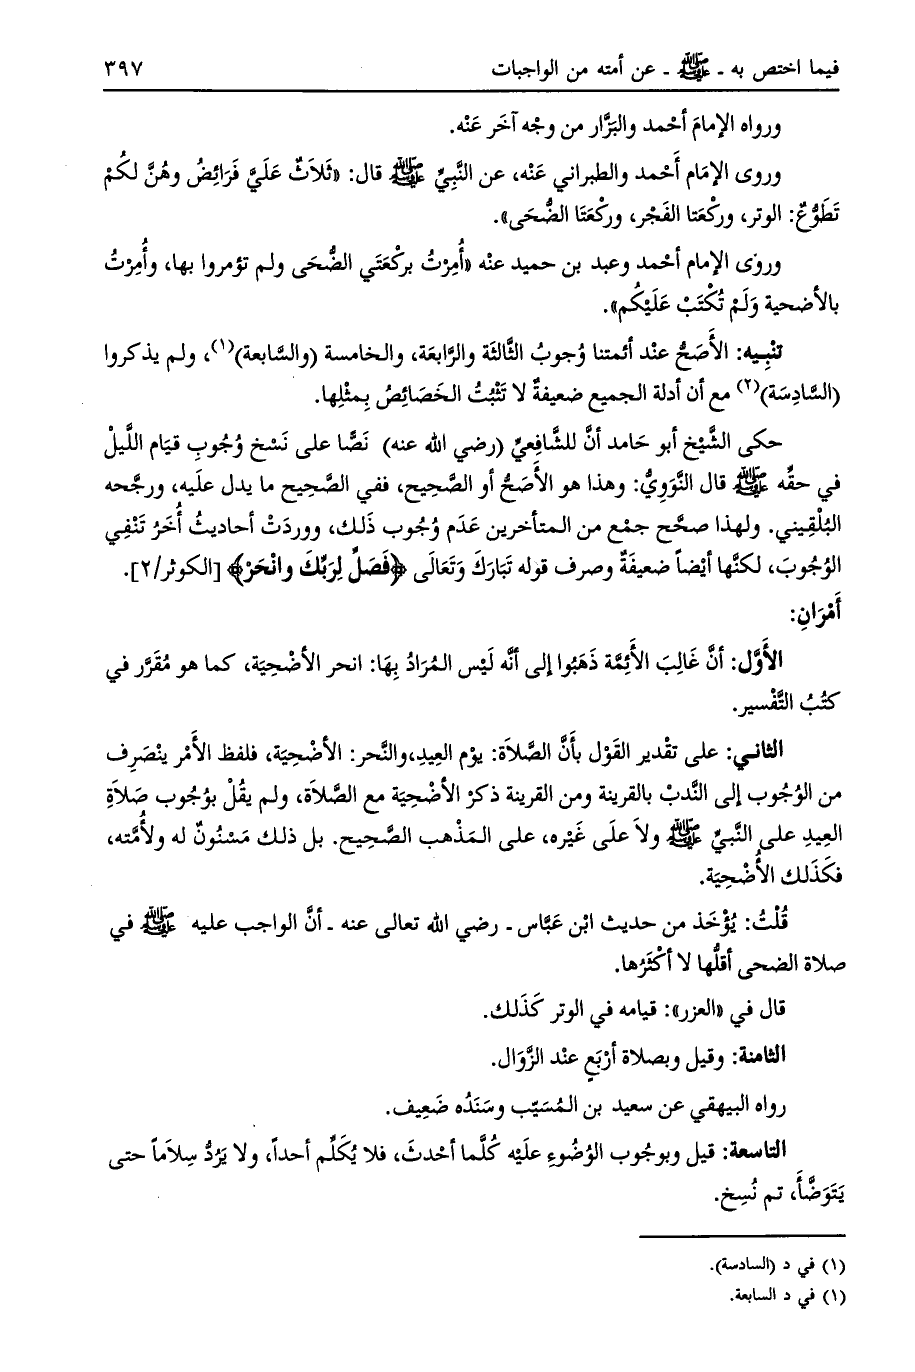 فيما اختص به ـ ﷺ ـ عن أمته من الواجبات ٣٩٧
ورواه الإمامَ أحْمد والبَزَّار من وجْه آخَر عَنْه.
وروى الإمَام أَحْمد والطبراني عَنْه، عن النَّبِيِّ ﷺ قال: «ثَلاَثٌ عَلَيَّ فَرَائِضُ وهُنَّ لكُمْ
تَطَوُّعٌ: الوتر، وركْعَتا الفَجْر، وركْعَتَا الضُّحَى».
وروى الإمام أحْمد وعبد بن حميد عنْه «أُمِرْتُ بركْعَتَي الضُّحَى ولم تؤمروا بها، وأُمِرْتُ
بالأضحية وَلَمْ تُكْتَبْ عَلَيْكُم».
تنْبِيه: الأَصَحُّ عند أئمتنا وُجوبُ الثَّالثَة والرَّابعَة، والخامسة (والسَّابعة)(١)، ولم يذكروا
(السَّادِسَة)(٢) مع أن أدلة الجميع ضعيفةٌ لا تَثْبُتُ الخَصَائِصُ بِمثْلِها.
حكى الشَّيْخ أبو حَامد أنَّ للشَّافعيِّ (رضي الله عنه) نَصًّا على نَسْخ وُجُوبِ قيَام اللَّيلْ
في حقِّه ﷺ قال النَّوَوِيُّ: وهذا هو الأَصَحُّ أو الصَّحيح، ففي الصَّحيح ما يدل علَيه، ورجَّحه
البُلْقِيني. ولهذا صحَّح جمْع من المتأخرين عَدَم وُجُوب ذَلك، ووردَتْ أحاديثُ أُخَرُ تَنْفِي
الوُجُوبَ، لكنَّها أيْضاً ضعيفَةٌ وصرف قوله تَبَارَكَ وَتَعَالَى ﴿فَصَلِّ لِرَبِّكَ وانْحَرْ﴾ [الكوثر/٢].
أَمْرَانِ:
الأَوَّل: أنَّ غَالِبَ الأَئِمَّة ذَهَبُوا إلى أنَّه لَيْس المُرَادُ بِهَا: انحر الأضْحِيَة، كما هو مُقَرَّر في
كتُبُ التَّفْسير.
الثاني: على تقْدير القَوْل بأَنَّ الصَّلاَة: يوْم العِيدِ،والنَّحر: الأضْحِيَة، فلفظ الأَمْر ينْصَرِف
من الوُجُوب إلى النَّدبْ بالقرينة ومن القرينة ذكرْ الأضْحِيَة مع الصَّلاَة، ولم يقُلْ بوُجُوب صَلاَةِ
العِيدِ على النَّبيِّ ﷺ ولاَ علَى غَيْره، على المَذْهب الصَّحيح. بل ذلك مَسْنُونٌ له ولأُمَّته،
فكَذَلك الأُضْحِيَة.
قُلْتُ: يُؤْخَذ من حديث ابْن عَبَّاس ـ رضي الله تعالى عنه ـ أنَّ الواجب عليه ﷺ في
صلاة الضحى أقلُّها لا أكْثَرُها.
قال في «العزر»: قيامه في الوتر كَذَلك.
الثامنة: وقيل وبصلاة أرْبَعٍ عنْد الزَّوَال.
رواه البيهقي عن سعيد بن المُسَيّب وسَنَدُه ضَعِيف.
التاسعة: قيل وبوجُوب الوُضُوءِ علَيْه كُلَّما أحْدثَ، فلا يُكَلِّم أحداً، ولا يَرُدُّ سِلاَماً حتى
يَتَوَضَّأَ، تم نُسِخ.
(١) في د (السادسة).
(١) في د السابعة.